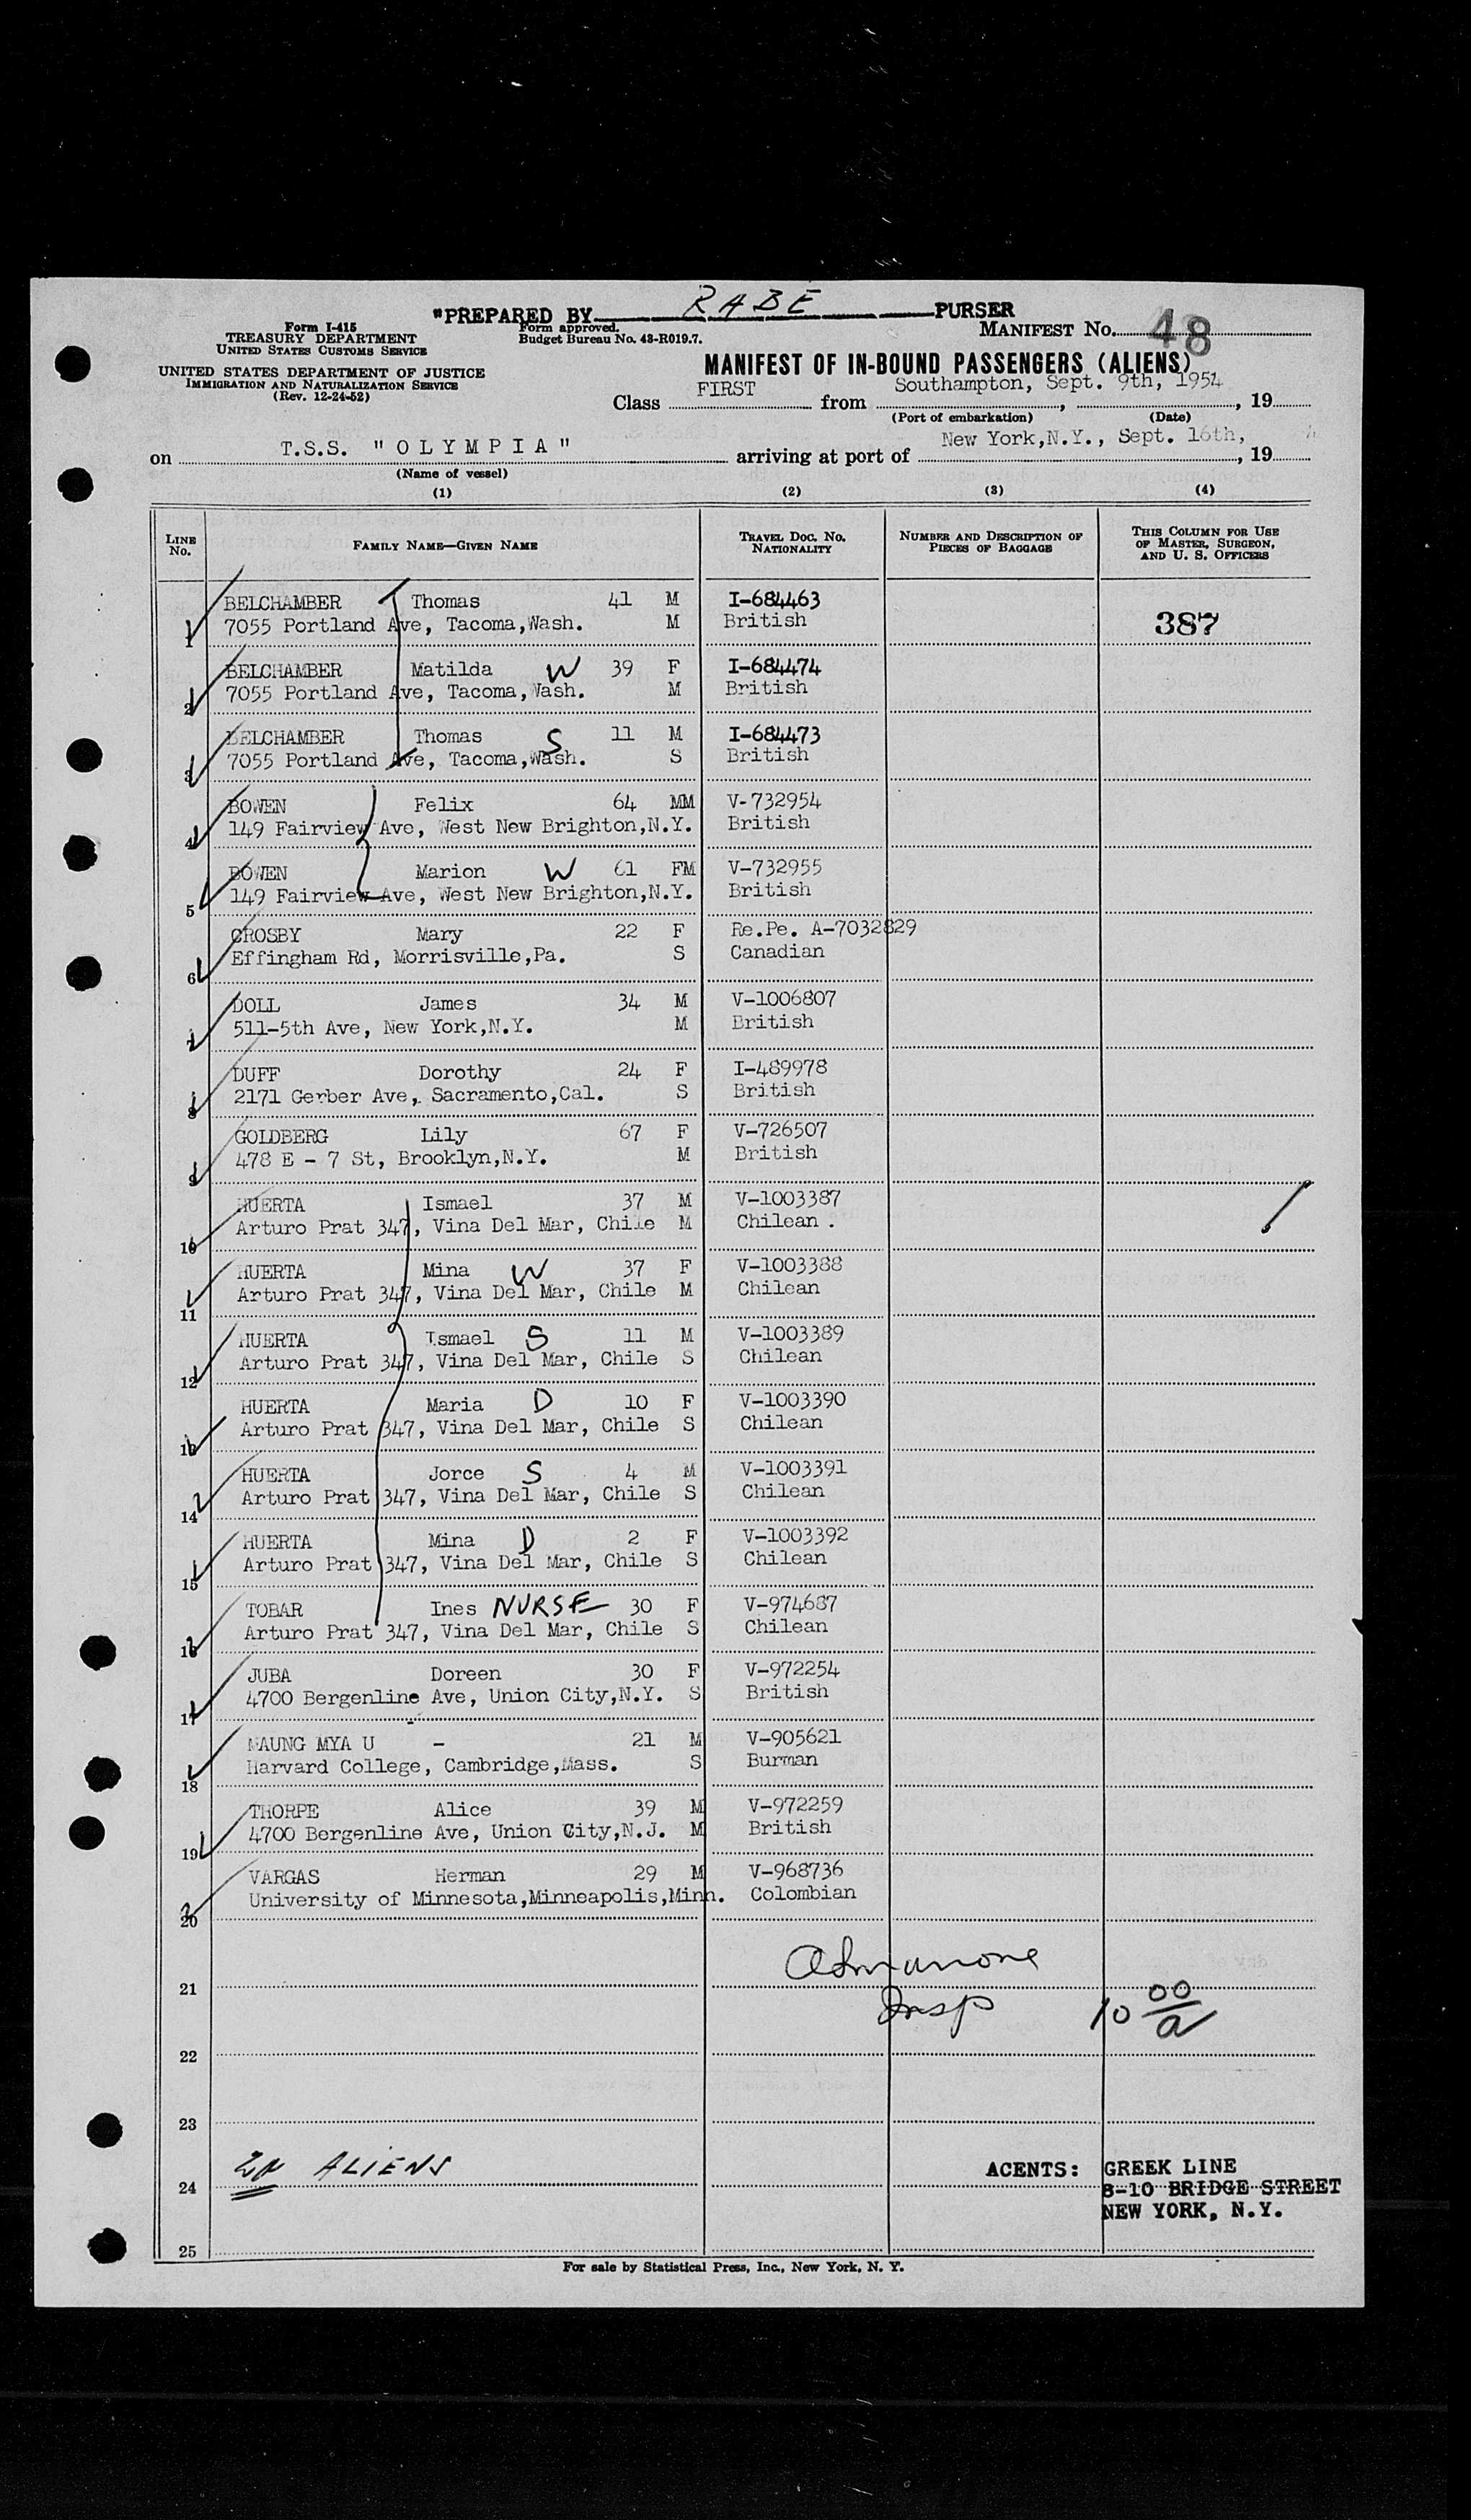 "PREPARED BY RABE PURSER
Form I-415
TREASURY DEPARTMENT
UNITED STATES CUSTOMS SERVICE
Form approved.
Budget Bureau No. 43-R019.7.
MANIFEST No. 48
UNITED STATES DEPARTMENT OF JUSTICE
IMMIGRATION AND NATURALIZATION SERVICE
(Rev. 12-24-52)
MANIFEST OF IN-BOUND PASSENGERS (ALIENS)
Class FIRST from Southampton, Sept. 9th, 1954, 19
(Port of embarkation) (Date)
on T.S.S. "OLYMPIA" arriving at port of New York,N.Y., Sept. 16th, 19
(Name of vessel)
(1) (2) (3) (4)
LINE No. FAMILY NAME—GIVEN NAME TRAVEL DOC. NO. NATIONALITY NUMBER AND DESCRIPTION OF PIECES OF BAGGAGE THIS COLUMN FOR USE OF MASTER, SURGEON, AND U. S. OFFICERS
BELCHAMBER Thomas 41 M I-684463
1 7055 Portland Ave, Tacoma,Wash. M British 387
BELCHAMBER Matilda W 39 F I-684474
2 7055 Portland Ave, Tacoma,Wash. M British
BELCHAMBER Thomas S 11 M I-684473
3 7055 Portland Ave, Tacoma,Wash. S British
BOWEN Felix 64 MM V-732954
4 149 Fairview Ave, West New Brighton,N.Y. British
BOWEN Marion W 61 FM V-732955
5 149 Fairview Ave, West New Brighton,N.Y. British
CROSBY Mary 22 F Re.Pe. A-7032829
6 Effingham Rd, Morrisville,Pa. S Canadian
DOLL James 34 M V-1006807
7 511-5th Ave, New York,N.Y. M British
DUFF Dorothy 24 F I-489978
8 2171 Gerber Ave, Sacramento,Cal. S British
GOLDBERG Lily 67 F V-726507
9 478 E - 7 St, Brooklyn,N.Y. M British
HUERTA Ismael 37 M V-1003387
10 Arturo Prat 347, Vina Del Mar, Chile M Chilean .
HUERTA Mina W 37 F V-1003388
11 Arturo Prat 347, Vina Del Mar, Chile M Chilean
HUERTA Ismael S 11 M V-1003389
12 Arturo Prat 347, Vina Del Mar, Chile S Chilean
HUERTA Maria D 10 F V-1003390
13 Arturo Prat 347, Vina Del Mar, Chile S Chilean
HUERTA Jorce S 4 M V-1003391
14 Arturo Prat 347, Vina Del Mar, Chile S Chilean
HUERTA Mina D 2 F V-1003392
15 Arturo Prat 347, Vina Del Mar, Chile S Chilean
TOBAR Ines NURSE 30 F V-974687
16 Arturo Prat 347, Vina Del Mar, Chile S Chilean
JUBA Doreen 30 F V-972254
17 4700 Bergenline Ave, Union City,N.Y. S British
MAUNG MYA U - 21 M V-905621
18 Harvard College, Cambridge,Mass. S Burman
THORPE Alice 39 M V-972259
19 4700 Bergenline Ave, Union City,N.J. M British
VARGAS Herman 29 M V-968736
20 University of Minnesota,Minneapolis,Minn. Colombian
21
Insp 10 00/a
22
23
24 ALIENS
ACENTS: GREEK LINE
8-10 BRIDGE STREET
NEW YORK, N.Y.
25
For sale by Statistical Press, Inc., New York, N. Y.